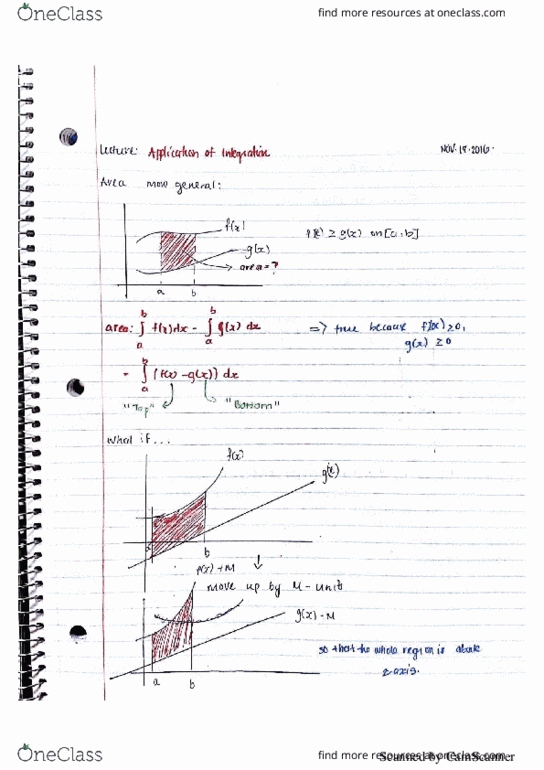 OneClass
find more resources at oneclass.com
Lecture: Application of Integration
NOV. 18. 2016.
Area more general:
f(x)
f(x) ≥ g(x) on [a,b]
g(x)
area = ?
a b
area: ∫_a^b f(x) dx - ∫_a^b g(x) dx
=> true because f(x) ≥ 0,
g(x) ≥ 0
= ∫_a^b [f(x) - g(x)] dx
"Top" "Bottom"
What if ...
f(x)
g(x)
b
f(x) + M
move up by M - unit
g(x) - M
so that the whole region is
x axis.
a b
OneClass
find more resources at oneclass.com
Scanned by CamScanner